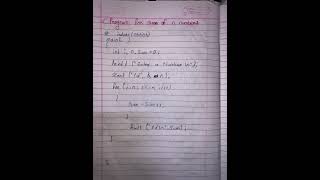 Program for sum of n numbers
# include <stdio.h>
main ( )
{
int i, n, sum = 0;
printf ("Enter a Number \n");
scanf ("%d", & n);
for (i=1; i<=n; i++)
{
sum = sum+i;
}
printf ("%d \n", sum);
}